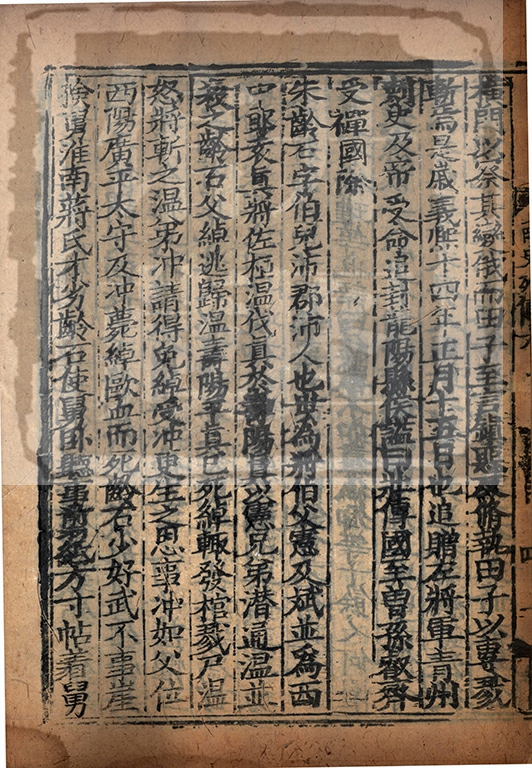 橫門以察其變俄而田子至言鎮惡反脩執田子以專戮
斬焉是歲義熙十四年正月十五日也追贈左將軍青州
刺史及帝受命追封龍陽縣侯謚曰壯傳國至曾孫叡齊
受禪國除
朱齡石字伯兒沛郡沛人也世為將伯父憲及斌並為西
中郎袁真將佐桓温伐真於壽陽真以憲兄弟潛通温並
殺之齡石父綽逃歸温壽陽平真已死綽輒發棺戮尸温
怒將斬之温弟冲請得免綽受冲更生之恩事冲如父位
西陽廣平太守及冲薨綽歐血而死齡石少好武不事崖
檢舅淮南蔣氏才劣齡石使舅卧聽事剪紙方寸帖着舅